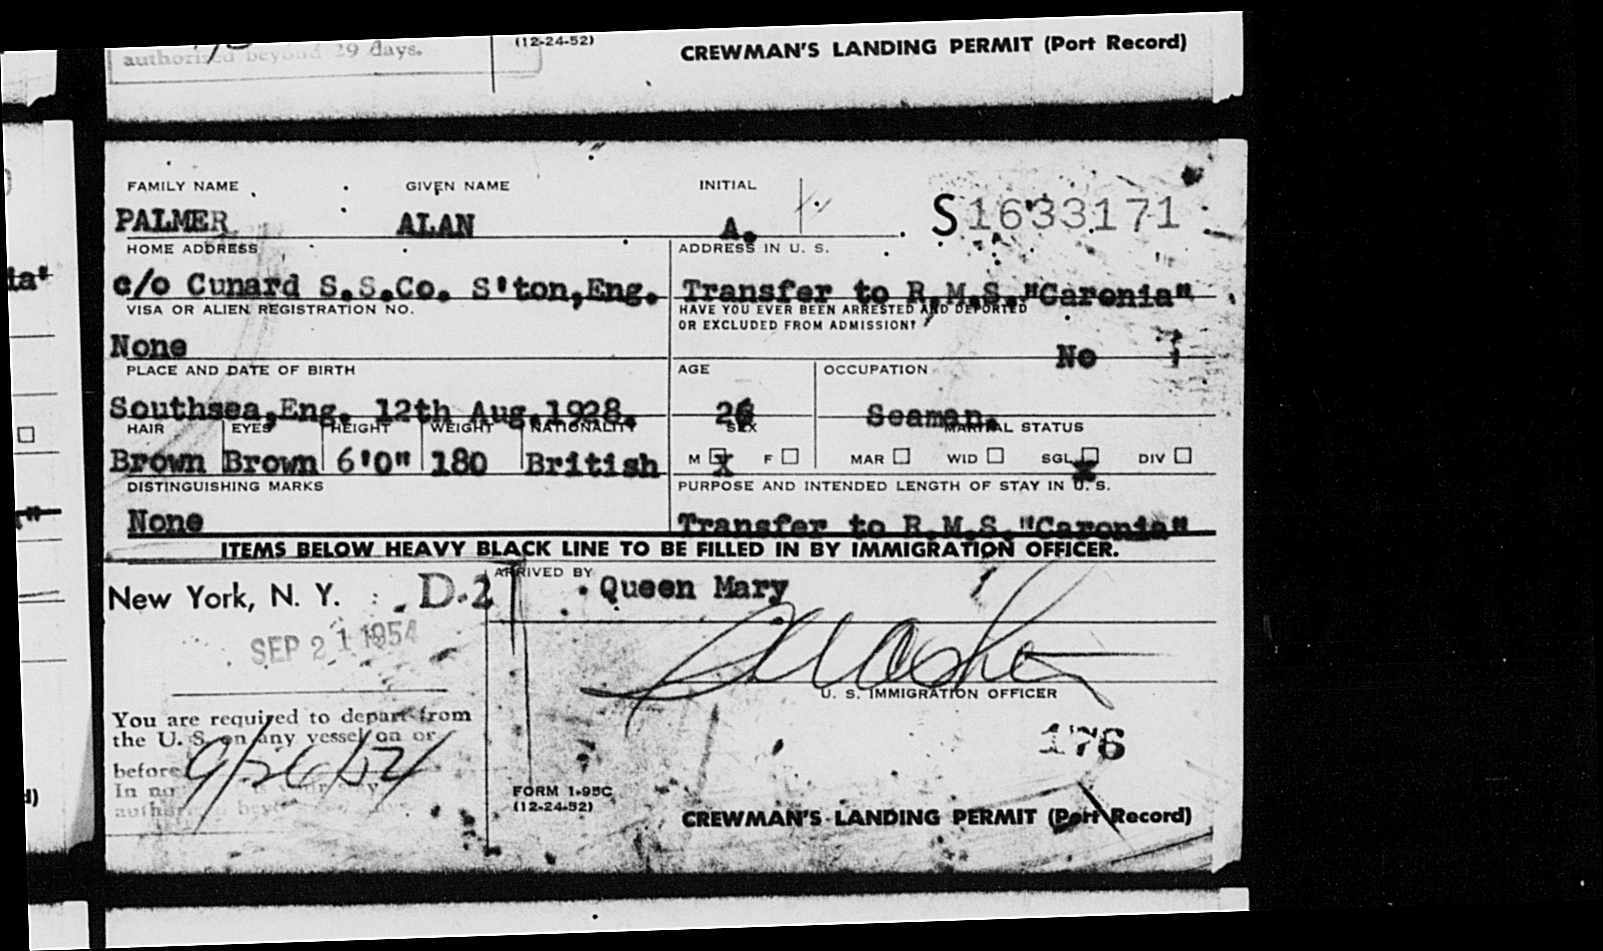 authorized beyond 29 days.
(12-24-52)
CREWMAN'S LANDING PERMIT (Port Record)
FAMILY NAME GIVEN NAME INITIAL
PALMER ALAN A. S1633171
HOME ADDRESS ADDRESS IN U. S.
c/o Cunard S.S.Co. S'ton,Eng. Transfer to R.M.S."Caronia"
VISA OR ALIEN REGISTRATION NO. HAVE YOU EVER BEEN ARRESTED AND DEPORTED
OR EXCLUDED FROM ADMISSION?
None No
PLACE AND DATE OF BIRTH AGE OCCUPATION
Southsea,Eng. 12th Aug.1928. 26 Seaman.
HAIR EYES HEIGHT WEIGHT NATIONALITY SEX MARITAL STATUS
Brown Brown 6'0" 180 British M X F MAR WID SGL X DIV
DISTINGUISHING MARKS PURPOSE AND INTENDED LENGTH OF STAY IN U. S.
None Transfer to R.M.S."Caronia"
ITEMS BELOW HEAVY BLACK LINE TO BE FILLED IN BY IMMIGRATION OFFICER.
New York, N. Y. D-2 ARRIVED BY Queen Mary
SEP 21 1954
U. S. IMMIGRATION OFFICER
You are required to depart from
the U. S. on any vessel on or
before 9/26/54
In no
176
FORM I-95C
(12-24-52)
CREWMAN'S LANDING PERMIT (Port Record)